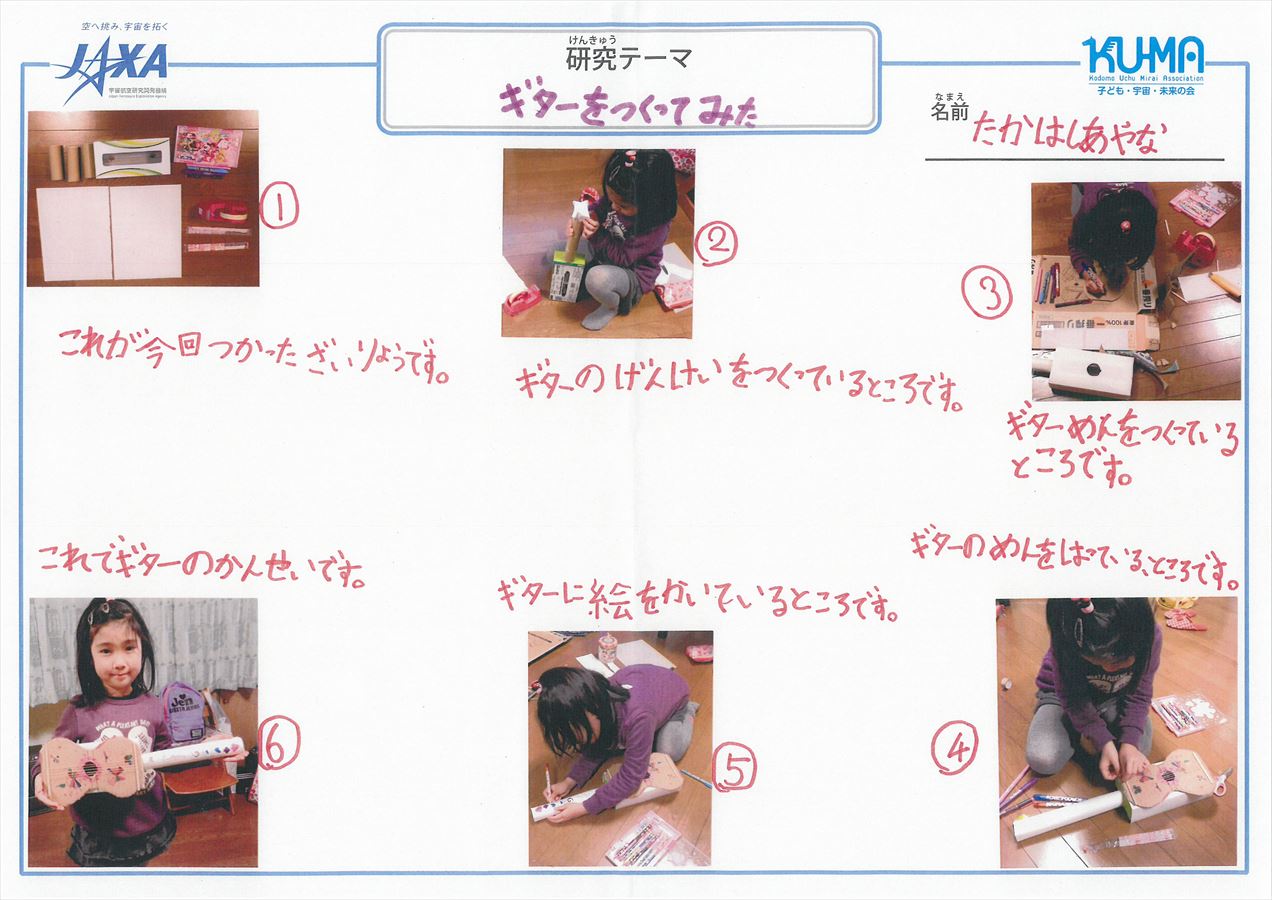 空へ挑み、宇宙を拓く
JAXA
宇宙航空研究開発機構
Japan Aerospace Exploration Agency
けんきゅう
研究テーマ
ギターをつくってみた
KU-MA
Kodomo Uchu Mirai Association
子ども・宇宙・未来の会
なまえ
名前
たかはしあやな
①
これが今回つかったざいりょうです。
②
ギターのげんけいをつくっているところです。
③
ギターめんをつくっている
ところです。
ギターのめんをはっている、ところです。
④
ギターに絵をかいているところです。
⑤
これでギターのかんせいです。
⑥